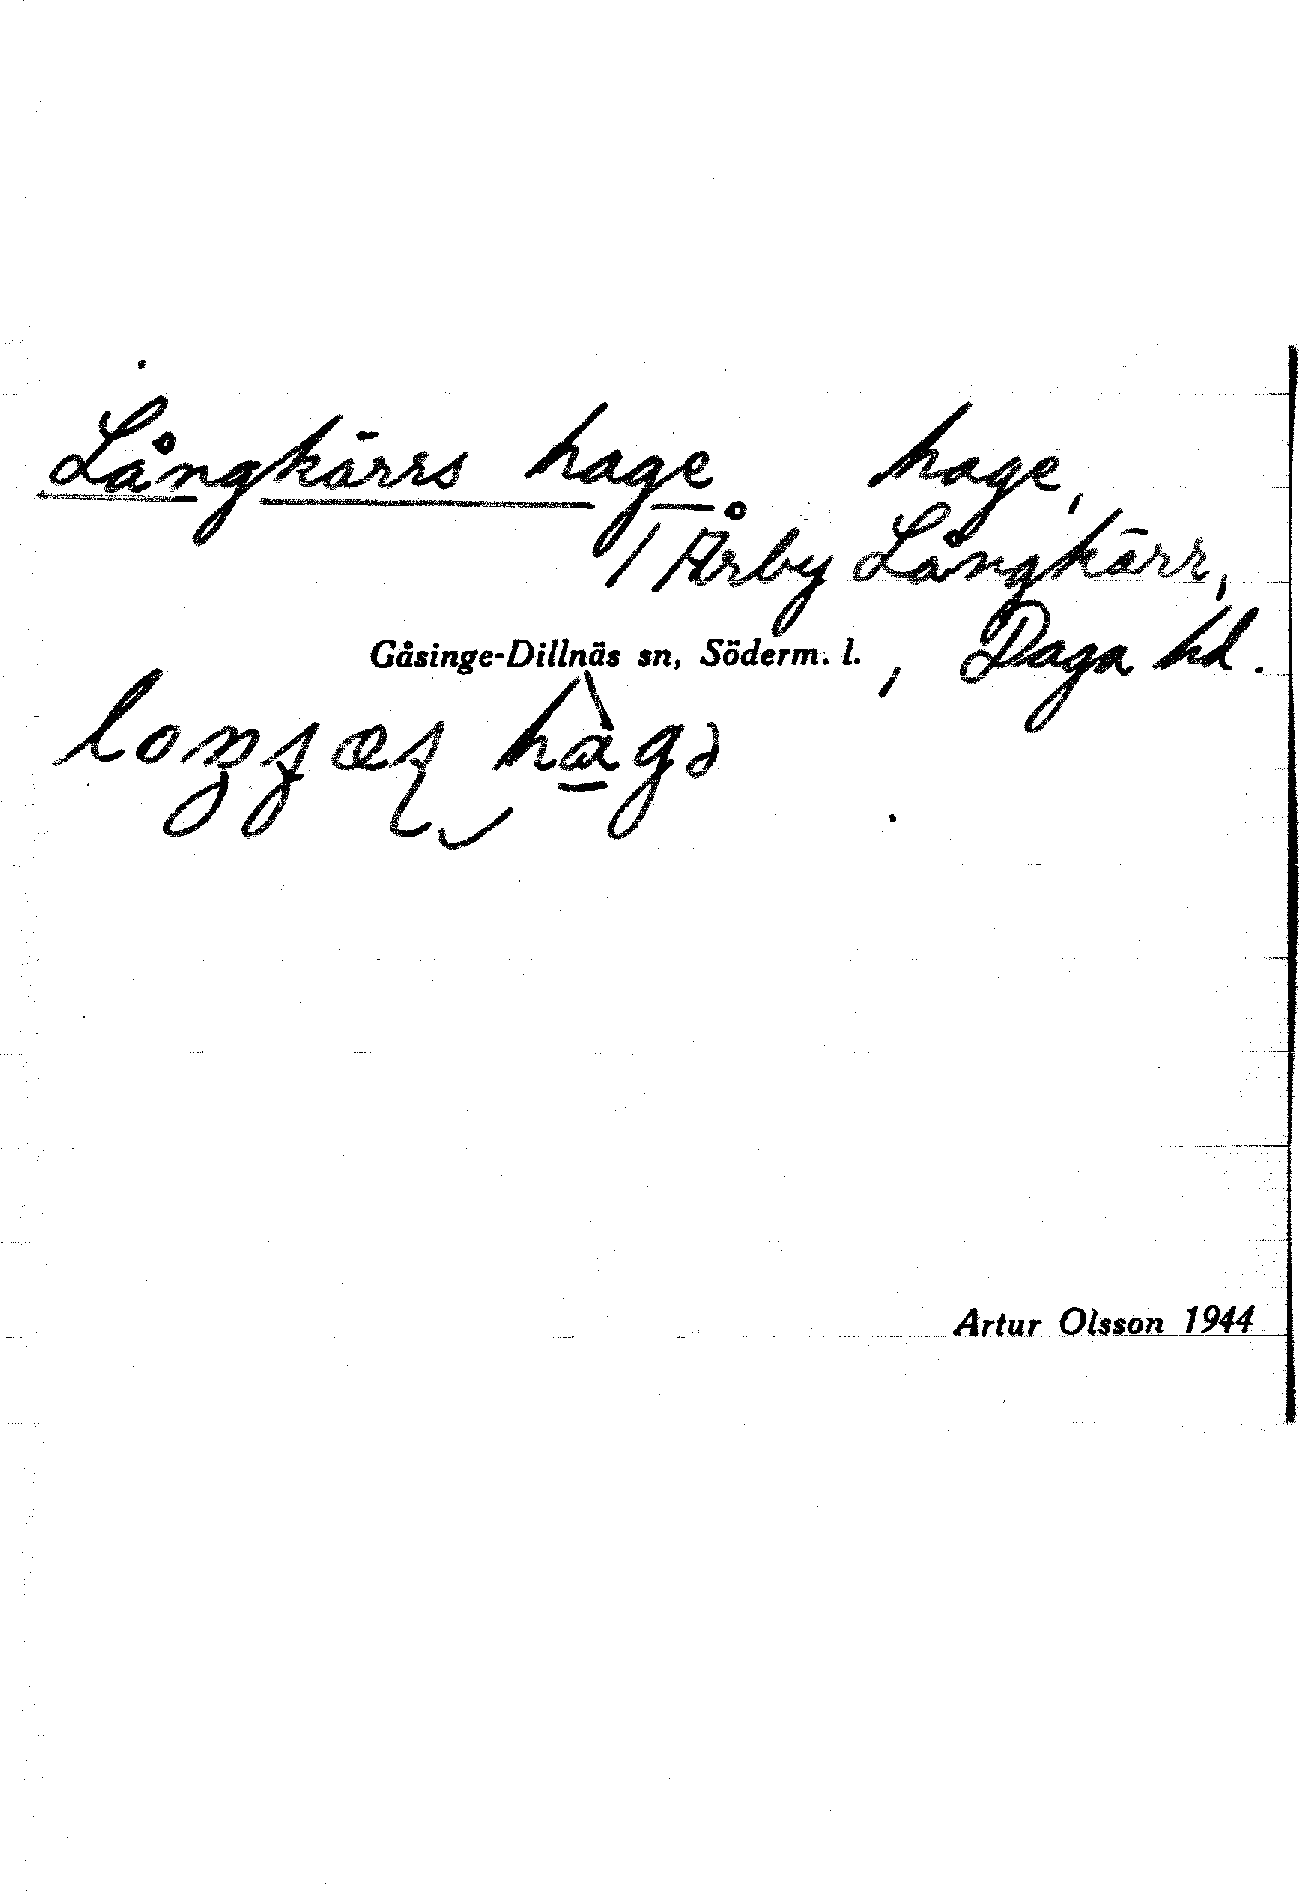 Långkärrs hage hage,
/ Årby Långkärr,
Gåsinge-Dillnäs sn, Söderm. l., Daga hd.
Artur Olsson 1944